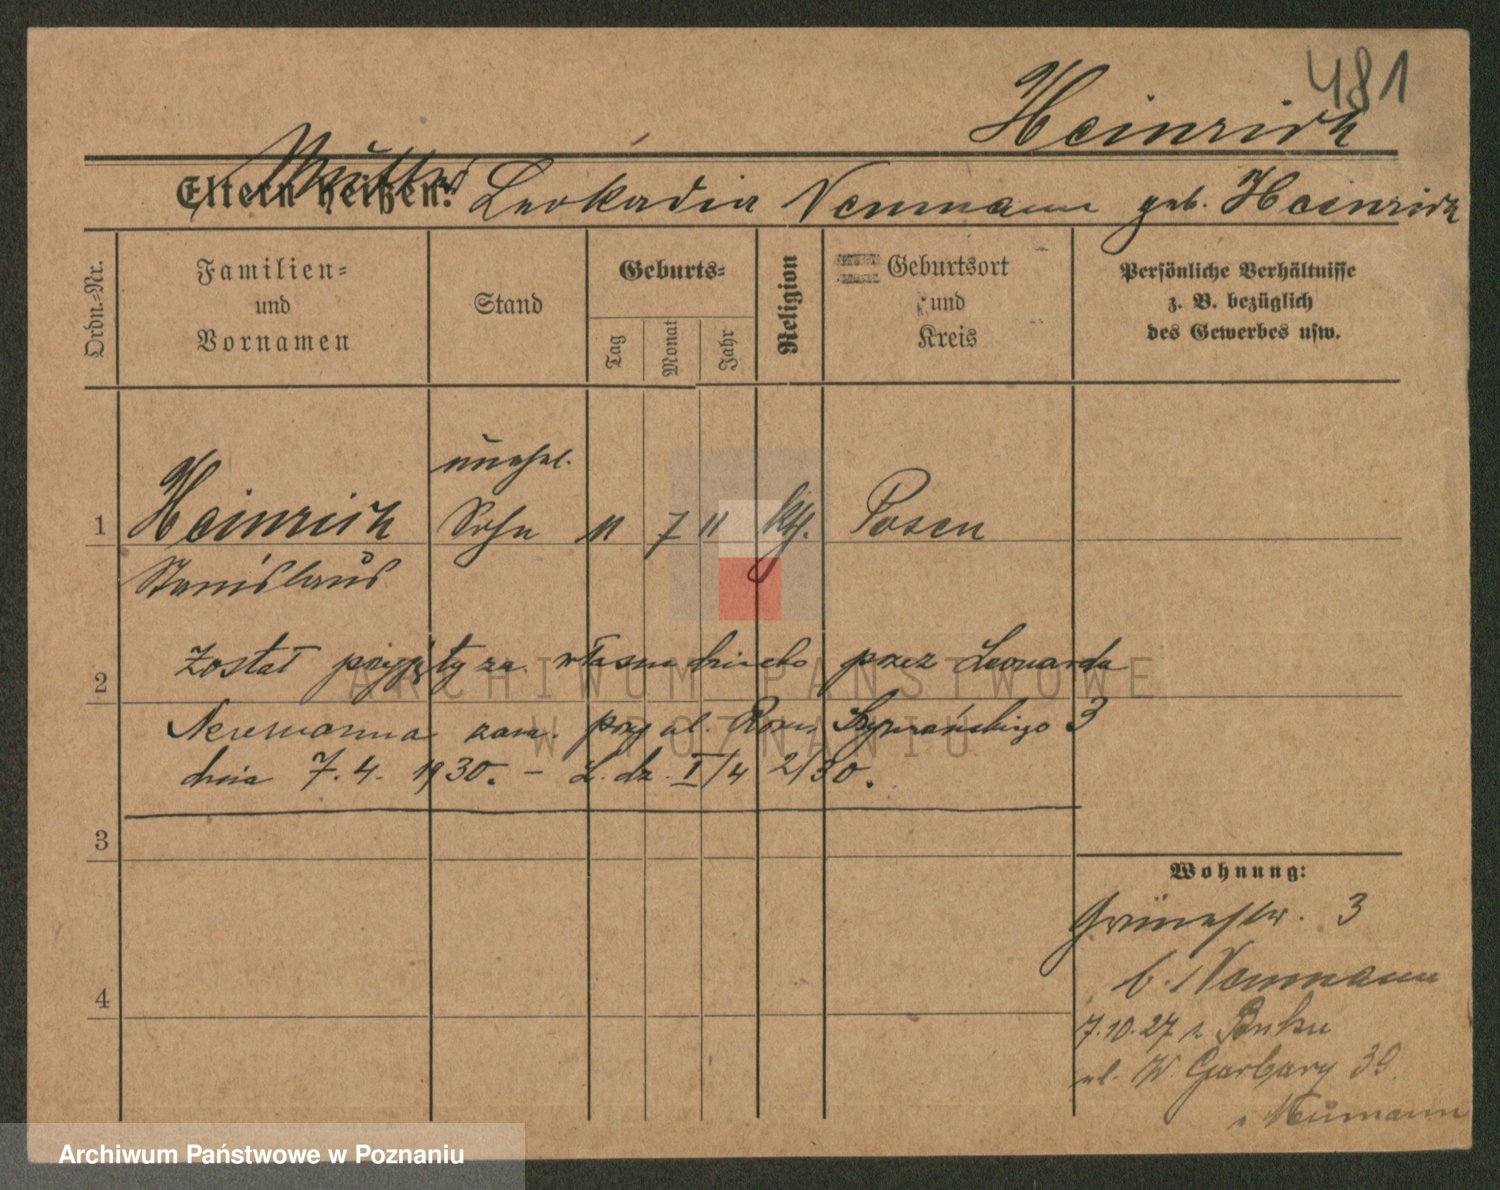 481
Heinrich
Eltern heißen: Mutter Leokadia Neumann geb. Heinrich
Ordn.=Nr.
Familien=
und
Vornamen
Stand
Geburts=
Tag
Monat
Jahr
Religion
Geburtsort
und
Kreis
Persönliche Verhältnisse
z. B. bezüglich
des Gewerbes usw.
unehel.
1 Heinrich Sohn 11 7 11 kth. Posen
Stanislaus
2 Został przyjęty za własne dziecko przez Leonarda
Neumanna zam. przy ul. Rom. Szymańskiego 3
dnia 7.4. 1930. – L. dz. I/4 2/30.
3
4
Wohnung:
Grünestr. 3
b. Neumann
7.10.27 z Buku
ul. W. Garbary 39
Neumann
ARCHIWUM PAŃSTWOWE
W POZNANIU
Archiwum Państwowe w Poznaniu